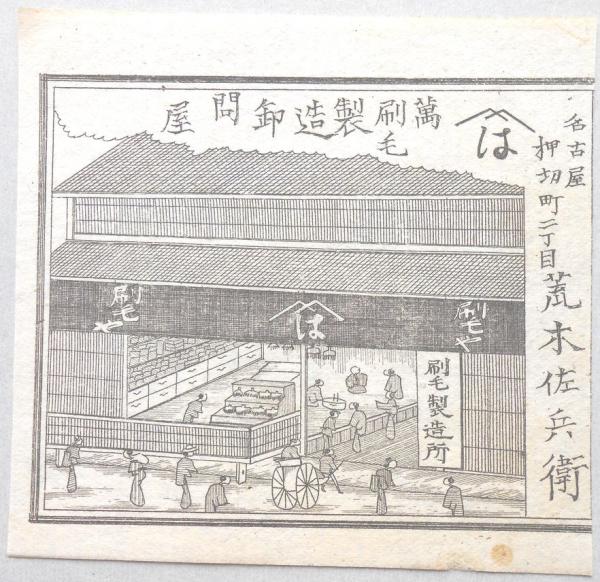 名古屋
押切町二丁目
荒木佐兵衛
は
萬刷毛製造卸問屋
刷毛や
は
刷毛や
刷毛製造所